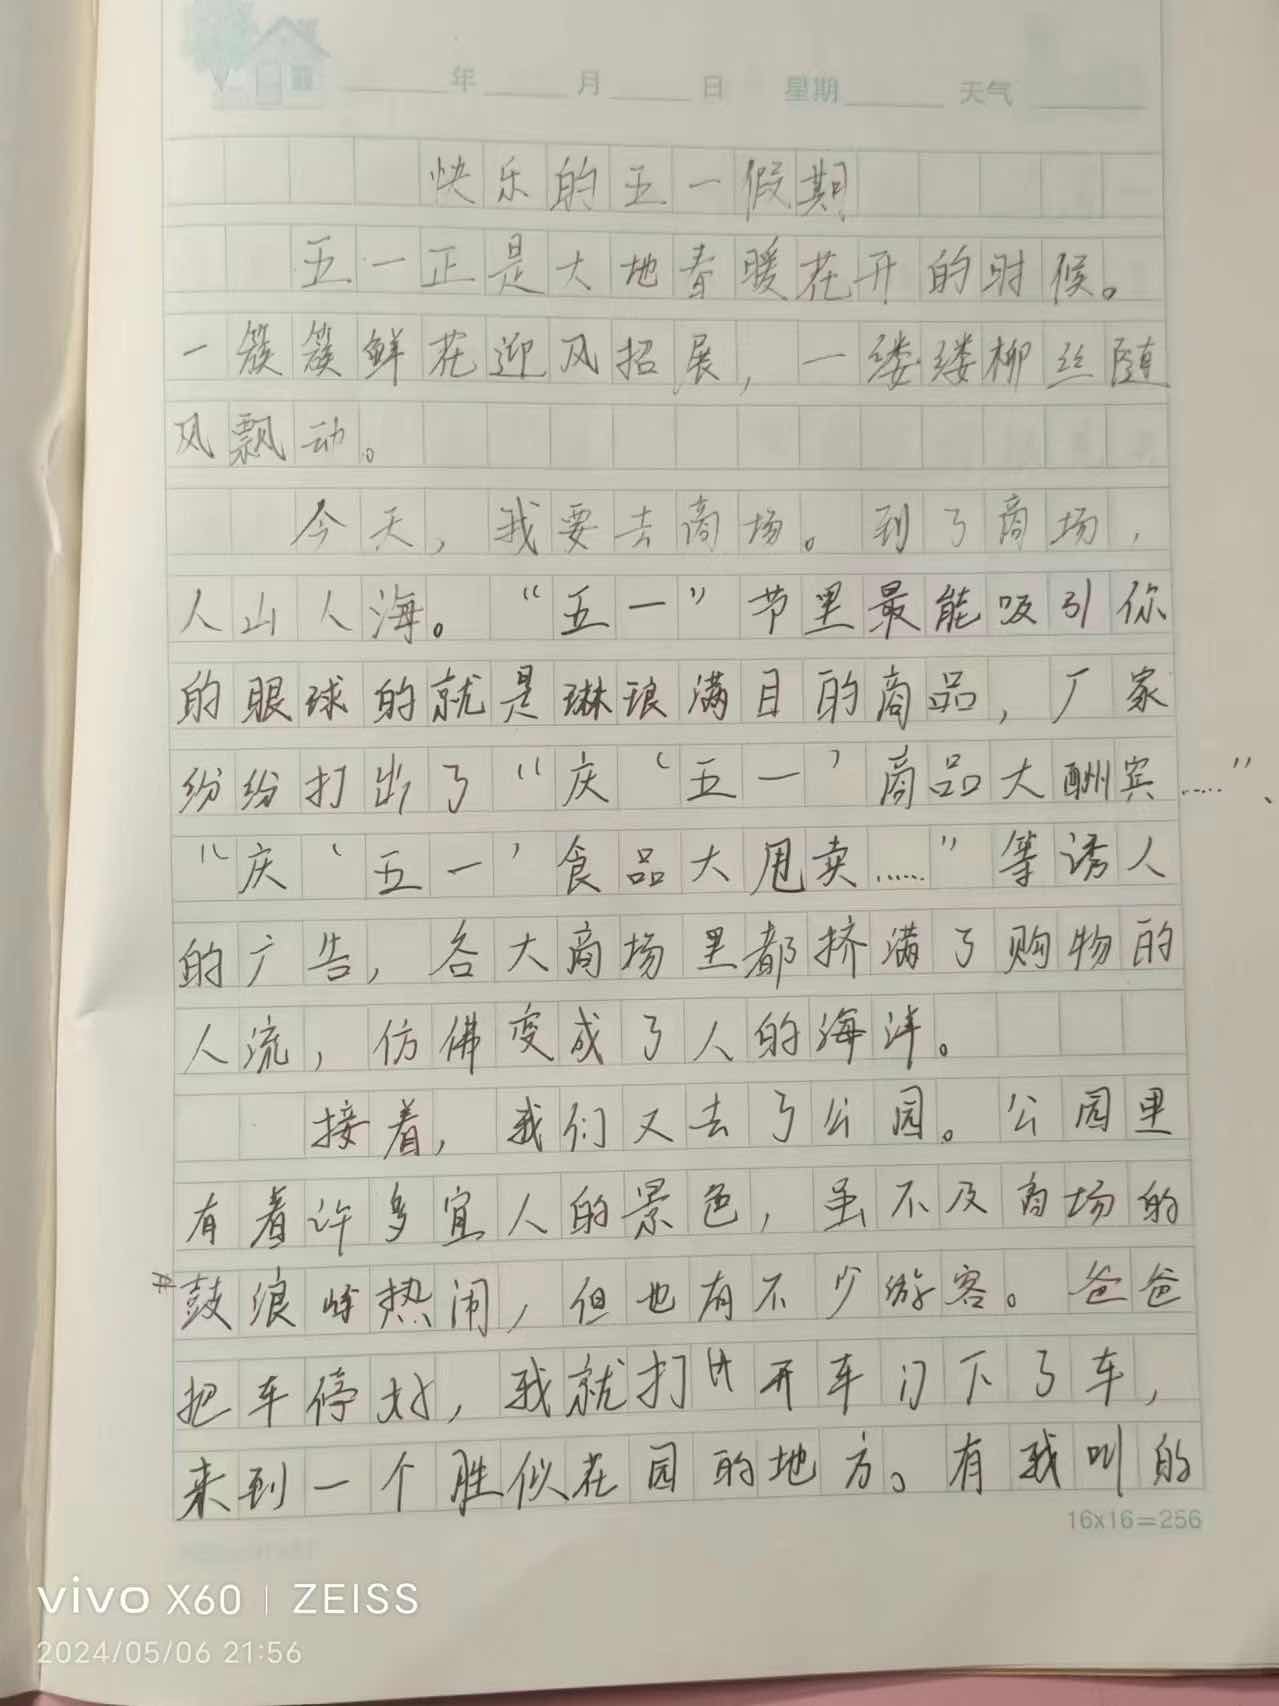 年 月 日 星期 天气
快乐的五一假期
五一正是大地春暖花开的时候。
一簇簇鲜花迎风招展，一缕缕柳丝随
风飘动。
今天，我要去商场。到了商场，
人山人海。“五一”节里最能吸引你
的眼球的就是琳琅满目的商品，厂家
纷纷打出了“庆‘五一’商品大酬宾……”、
“庆‘五一’食品大甩卖……”等诱人
的广告，各大商场里都挤满了购物的
人流，仿佛变成了人的海洋。
接着，我们又去了公园。公园里
有着许多宜人的景色，虽不及商场的
鼓浪屿热闹，但也有不少游客。爸爸
把车停好，我就打开车门下了车，
来到一个胜似花园的地方。有我叫的
16x16=256
vivo X60 | ZEISS
2024/05/06 21:56